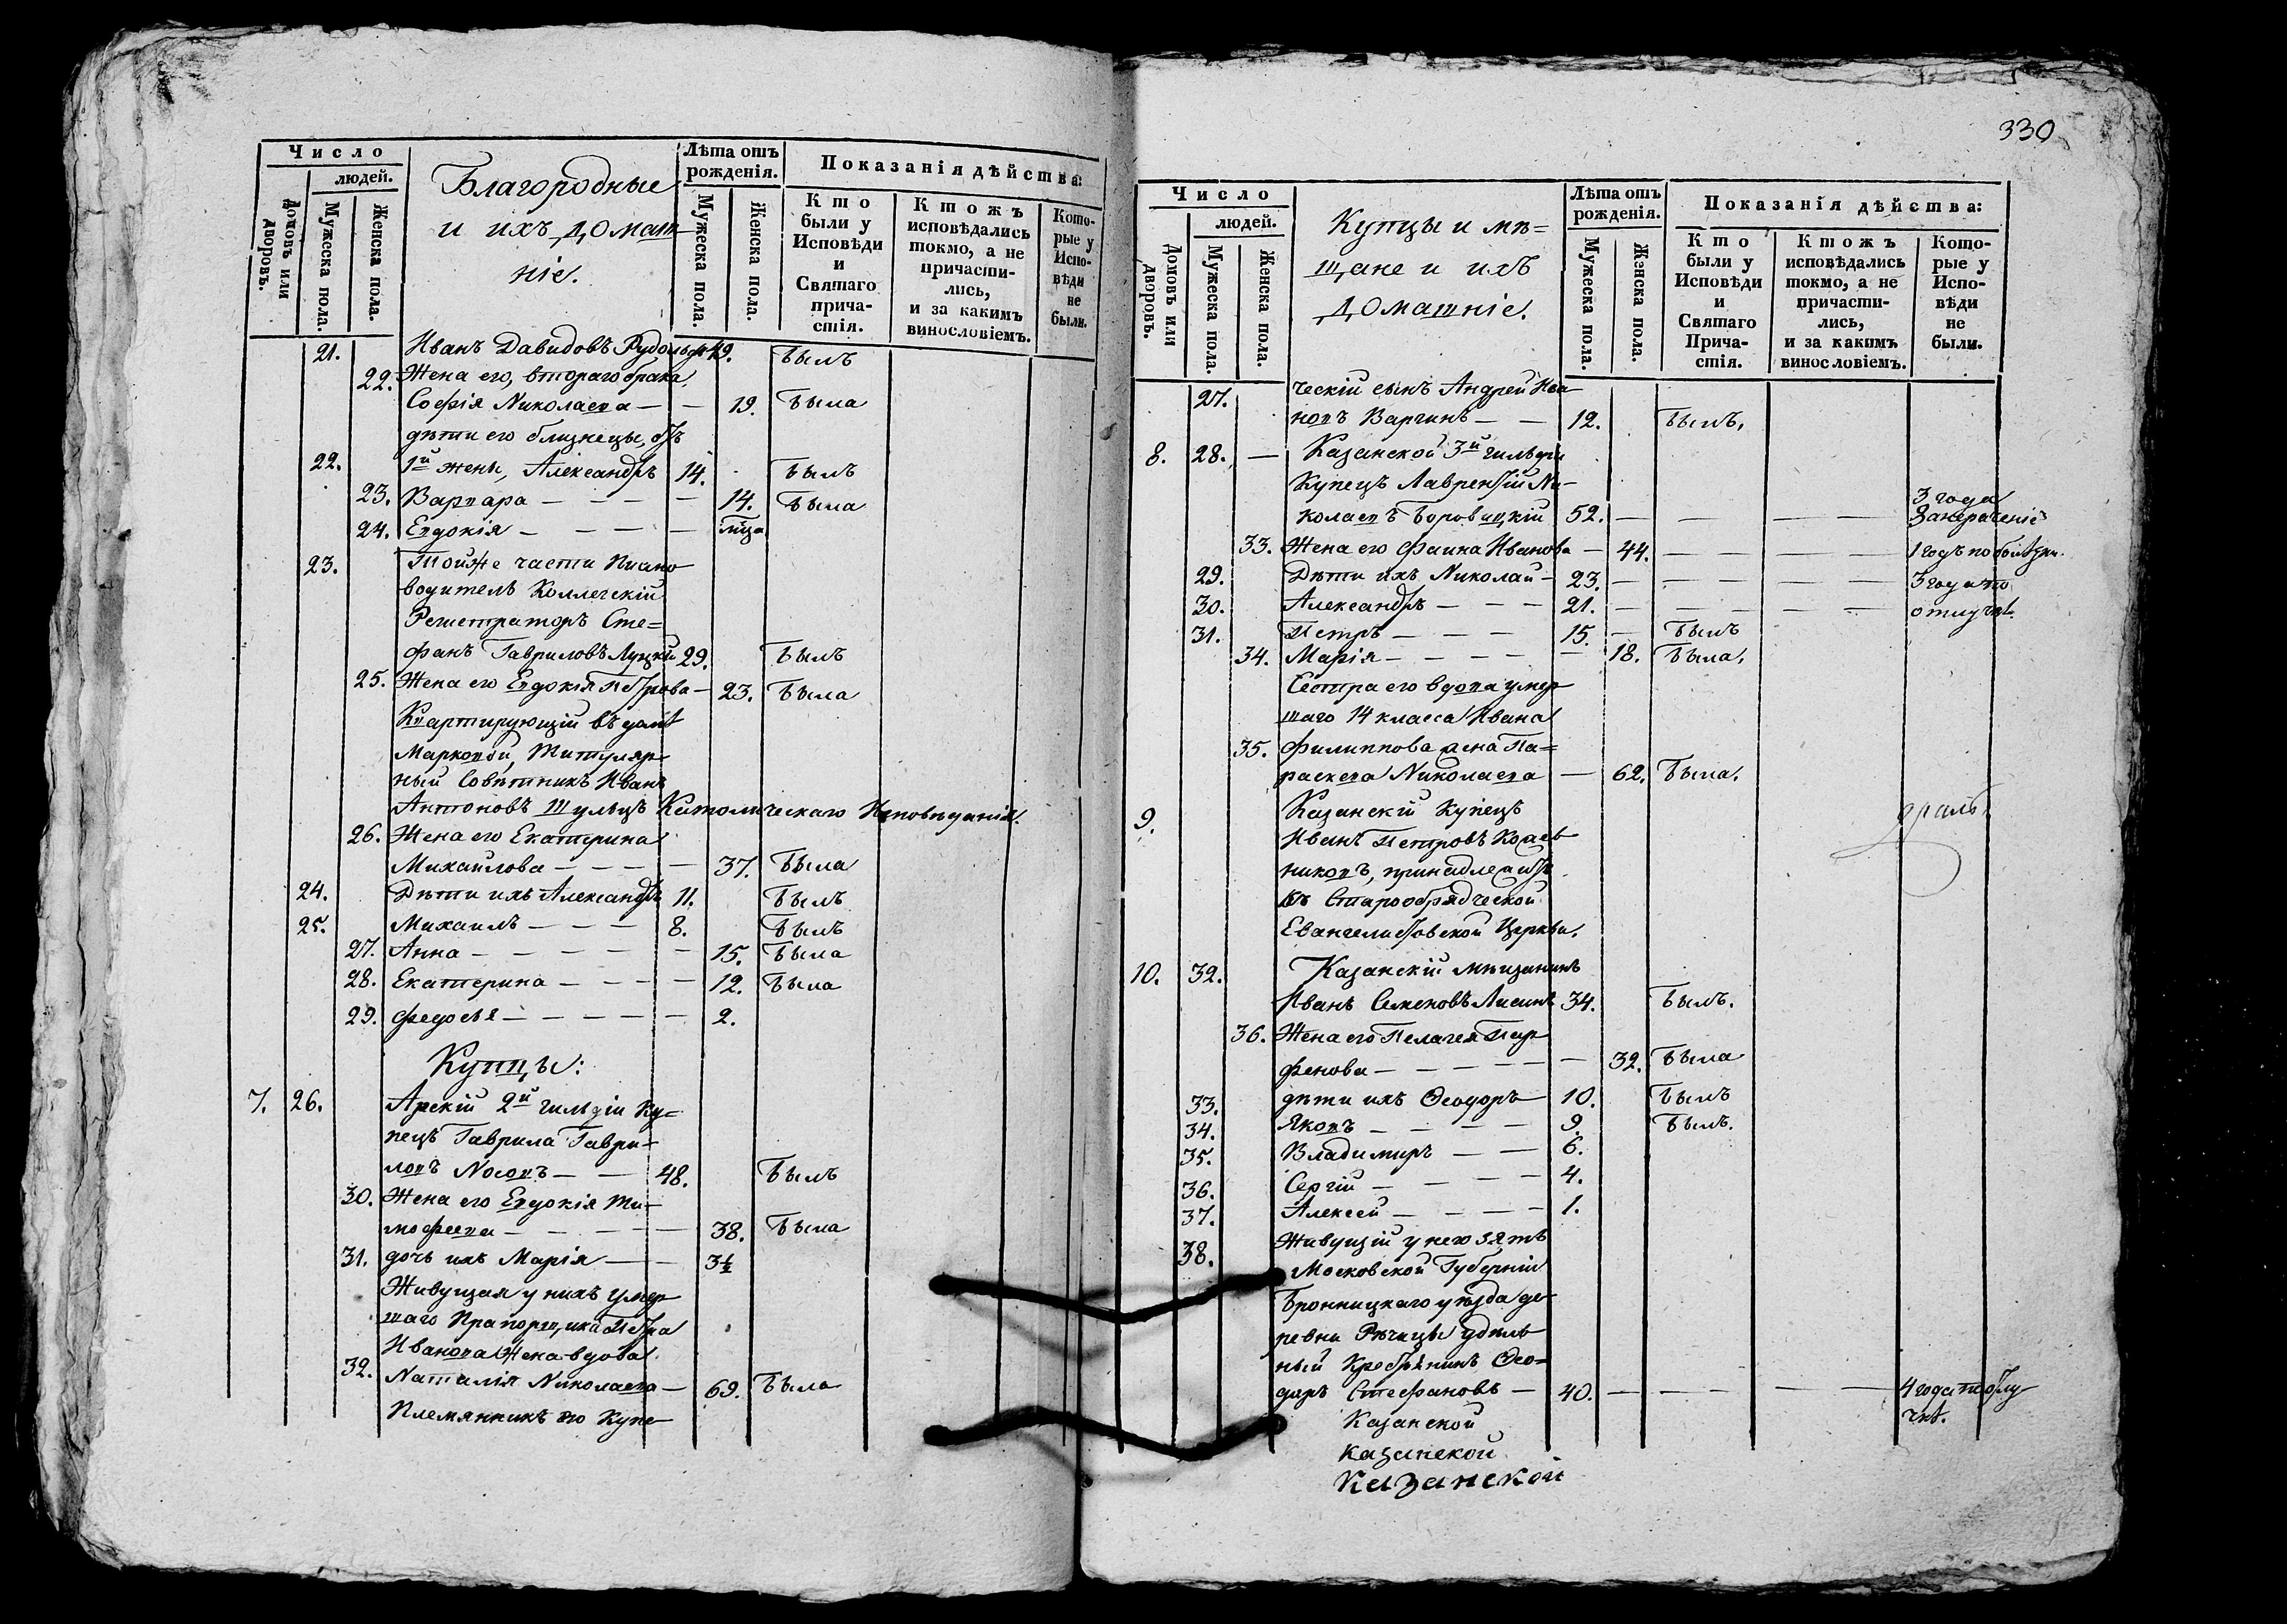 Число
людей.
Домовъ или дворовъ.
Мужеска пола.
Женска пола.
Благородные
и ихъ домаш-
ніе.
Лѣта отъ
рожденія.
Мужеска пола.
Женска пола.
Показанія дѣйства:
Кто
были у
Исповѣди
и
Святаго
прича-
стія.
Кто жъ
исповѣдались
токмо, а не
причасти-
лись,
и за какимъ
винословіемъ.
Кото-
рые у
Испо-
вѣди
не
были.
21. Иванъ Давидовъ Рудольфъ 49. былъ
22. Жена его, втораго брака,
Софія Николаева — — 19. была
дѣти его близнецы, отъ
22. 1й жены, Александръ 14. былъ
23. Варвара — — — — 14. была
24. Евдокія — — — — мѣца
23. Тойже части Письмо
водитель Коллегскій
Регистраторъ Сте=
фанъ Гавриловъ Луцкій 29. былъ
25. Жена его Евдокія Петрова — 23. была
Квартирующій въ домѣ
Марковой, Титуляр-
ный Совѣтникъ Иванъ
Антоновъ Шульцъ Католическаго Исповѣданія.
26. Жена его Екатерина
Михайлова — — — — 37. была
24. Дѣти ихъ Александръ 11. былъ
25. Михаилъ — — — 8. былъ
27. Анна — — — — — 15. была
28. Екатерина — — — — 12. была
29. Федосья — — — — — 2.
Купцы:
7. 26. Арскій 2й гильдіи Ку=
пецъ Гаврила Гаври-
ловъ Носовъ — — 48. былъ
30. Жена его Евдокія Ти-
мофеева — — — — — 38. была
31. дочь ихъ Марія — — 3½
Живущая у нихъ умер
шаго Прапорщика Петра
Иванова жена вдова
32. Наталія Николаева — 69. была
Племянникъ его Купе
330
Число
людей.
Домовъ или дворовъ.
Мужеска пола.
Женска пола.
Купцы и мѣ=
щане и ихъ
домашніе.
Лѣта отъ
рожденія.
Мужеска пола.
Женска пола.
Показанія дѣйства:
Кто
были у
Исповѣди
и
Святаго
Прича-
стія.
Кто жъ
исповѣдались
токмо, а не
причасти-
лись,
и за какимъ
винословіемъ.
Кото-
рые у
Испо-
вѣди
не
были.
27. ческій сынъ Андрей Ива
новъ Варгинъ — — 12. былъ,
8. 28. — Казанской 3й гильдіи
Купецъ Лаврентій Ни-
колаевъ Боровицкій 52. — — — — 3 года
Занерачениѣ
33. Жена его Фаина Иванова — 44. — — — — 1 годъ по болѣзни.
29. Дѣти ихъ Николай — 23. — — — — 3 года по
30. Александръ — — — 21. — — — — отлучкѣ.
31. Петръ — — — 15. — былъ
34. Марія — — — — — 18. была,
Сестра его вдова умер
шаго 14 класса Ивана
35. Филиппова жена Па=
раскева Николаева — 62. была.
9. Казанскій Купецъ
Иванъ Петровъ
никовъ, принадлежитъ
къ Старообрядческой
Евангелистовской Церкви.
10. 32. Казанскій мѣщанинъ
Иванъ Семеновъ Лисинъ 34. былъ.
36. Жена его Пелагея Пар
фенова — — — — — — 32. была
33. дѣти ихъ Ѳеодоръ — 10. былъ
34. Яковъ — — — — 9. былъ.
35. Владимиръ — — 6.
36. Сергій — — — — 4.
37. Алексей — — — — 1.
38. Живущій у него зять
Московской Губерніи
Бронницкаго уѣзда де-
ревни Рѣчицы удѣль
ный Крестьянинъ Ѳео=
доръ Стефановъ — 40. — — — — 4 года по отлу
чкѣ.
Казанской
Казанской
Казанской